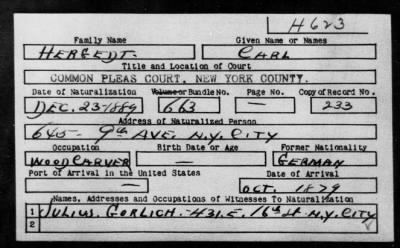 H623
Family Name Given Name or Names
HERGEDT. CARL
Title and Location of Court
COMMON PLEAS COURT, NEW YORK COUNTY.
Date of Naturalization Volume or Bundle No. Page No. Copy of Record No.
DEC. 23-1889 663 — 233
Address of Naturalized Person
645- 9th AVE. N.Y. CITY
Occupation Birth Date or Age Former Nationality
WOOD CARVER — GERMAN
Port of Arrival in the United States Date of Arrival
— OCT. 1879
Names, Addresses and Occupations of Witnesses To Naturalization
1 JULIUS. GORLICH. 431. E. 16th St N.Y. CITY
2